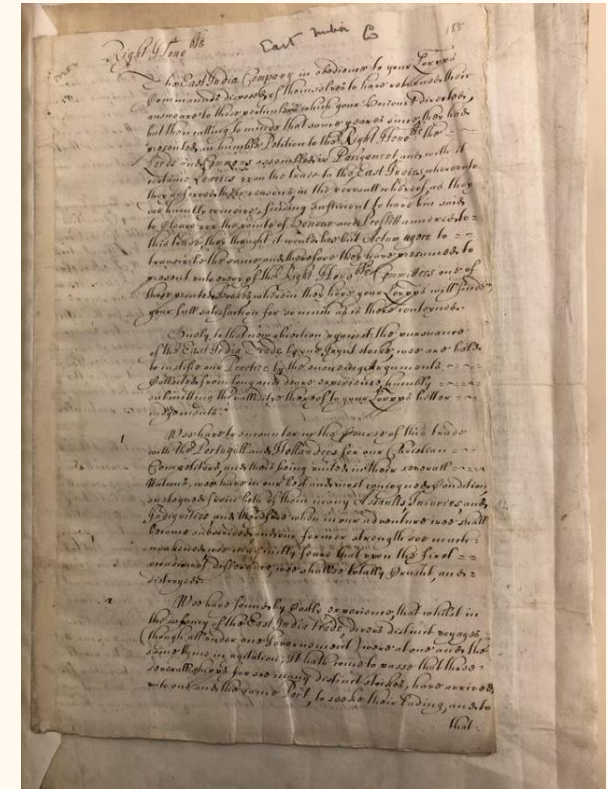 East India Co
185
Right Hono ble
The East India Company in obedience to your Lorpps
Commaunds disposed themselves to have returned their
answeare to those perticulers which your Honours directed,
but then calling to minde that some yeares since they had
presented an humble Petition to the Right Hono ble the
Lords and Comons assembled in Parliament and with it
certaine reasons upon the trade to the East Indies, whereunto
they referred their reasons in the perusall whereof, as they
are humbly conceive, finding sufficient to have bin said
to cleare the pointe of Honour and Proffitt annexed to
this trade, they thought it would bee but Actum agere to
transcribe the same and therefore they have presumed to
present unto every of the Right Hono ble Committees one of
those printed bookes, wherein they hope your Lorpps will finde
your full satisfaction for so much as is there conteyned.
Onely to that now obiection against the pursuance
of the East India Trade by one Joynt stocke, wee are bold
to iustifie our Practice by the ensueing Arguments
Collected from long and deare experience, humbly
submitting the vallidity thereof to your Lorpps better
iudgements.
Wee have to encounter in the Course of this trade
with the Portugall and Hollanders for our Christian
Competitors, and they being united in their severall
Nations, wee have in our best and most conioyned Condition
endured from both of them many Assaults, Iniuries and
Indignities and therefore when in our adventure wee shall
become subdevided and our former strength soe much
weakened, wee may iustly feare that upon the first
occasion of difference, wee shall be totally Crusht, and
distroyed.
Wee have found by Costly experience, that whilst in
the infancy of the East India trade, divers distinct voyages,
(though all under one Government) were at one and the
same tyme in agitation, It hath come to passe that three
severall shipps for soe many distinct stockes, have arrived
into one and the same Port, to seeke their lading, and to
that